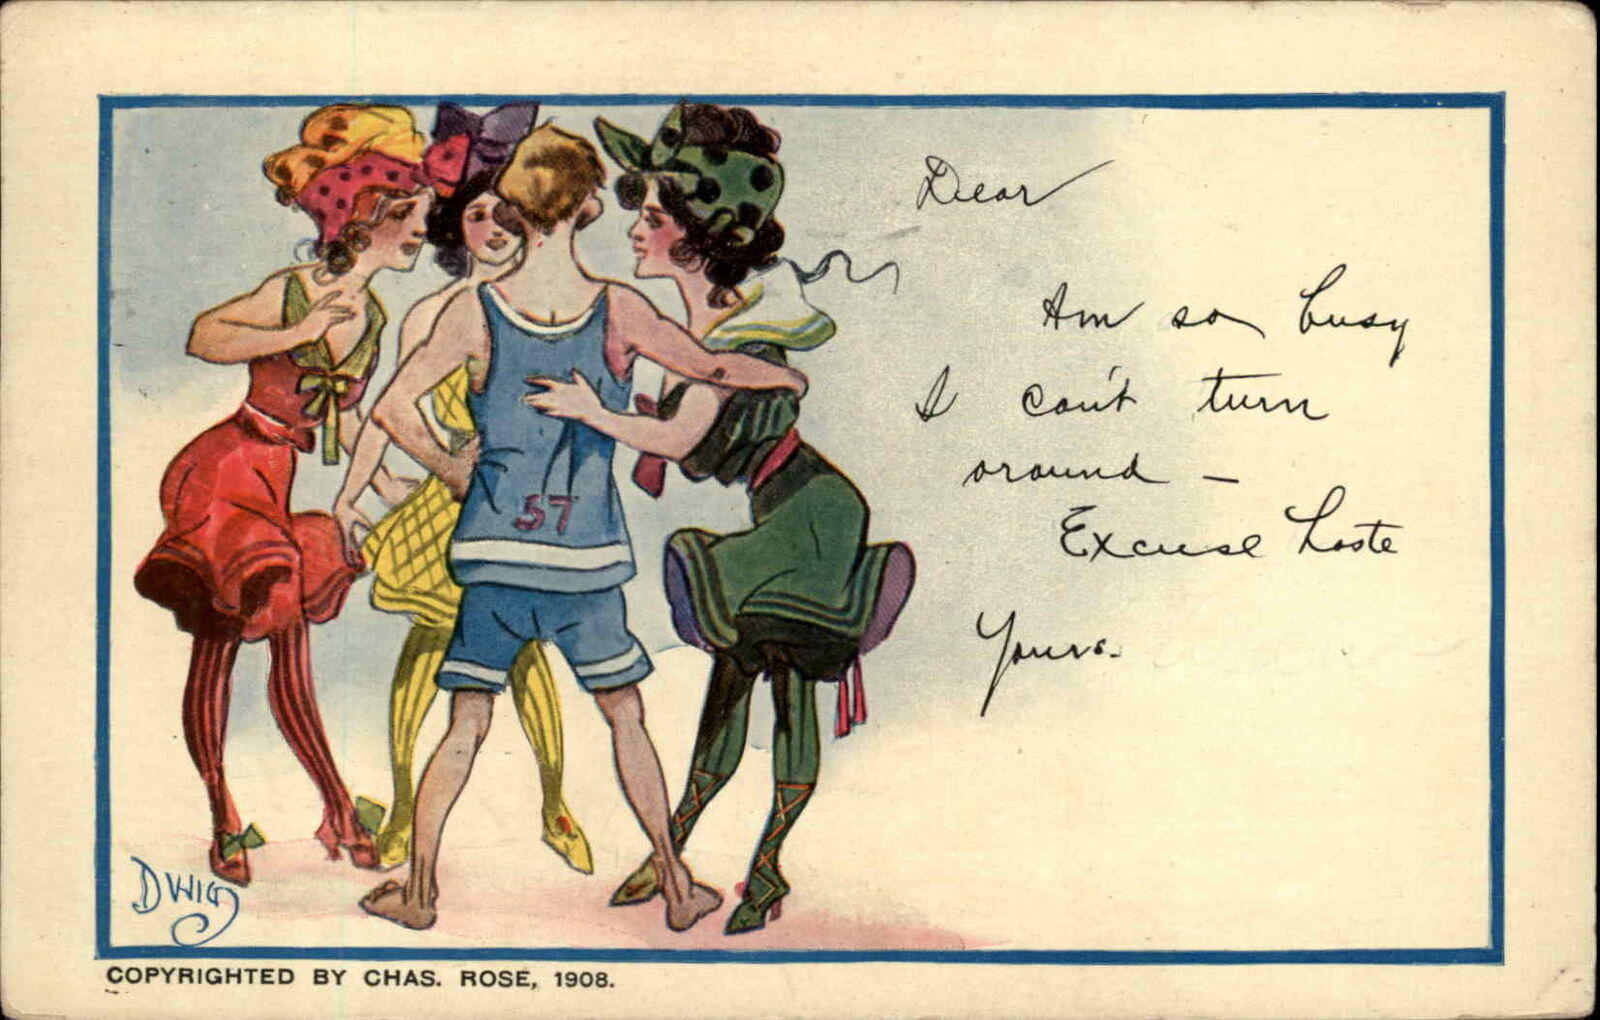 Dear
Am so busy
I can't turn
around —
Excuse haste
Yours.
57
DWIG
COPYRIGHTED BY CHAS. ROSE, 1908.